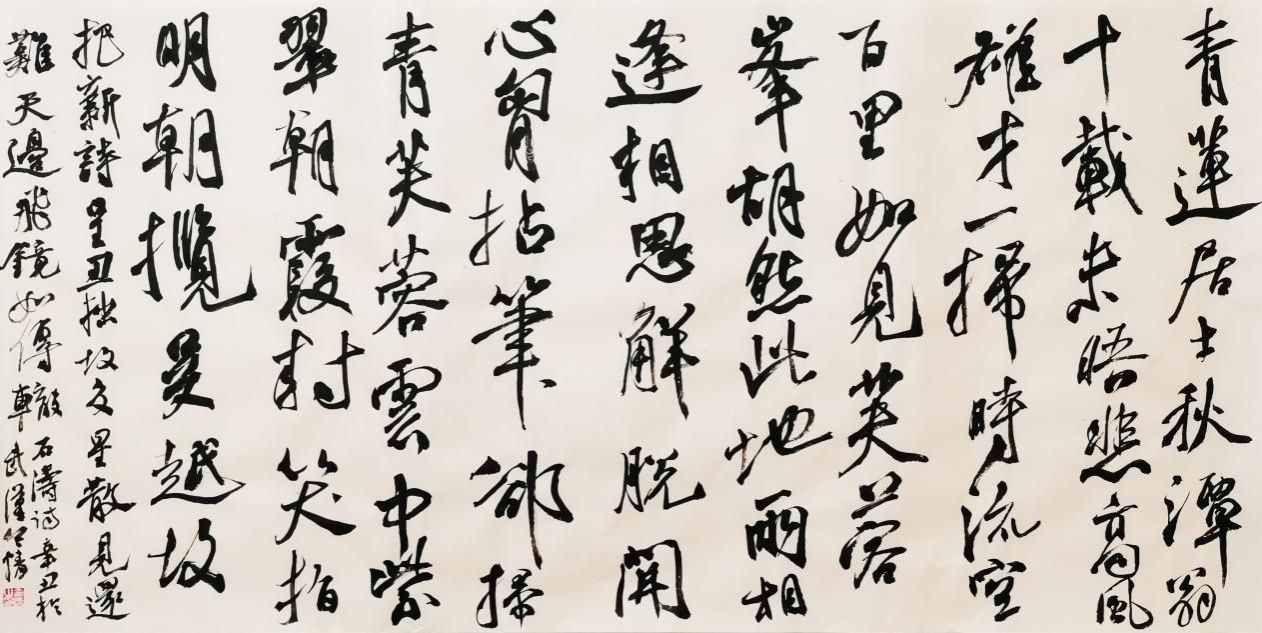 青蓮居士秋潭翁
十載未晤悲高風
雄才一掃時流空
百里如見芙蓉
峯胡然此地雨相
逢相思解脱開
心胷拈筆欲掃
青芙蓉雲中紫
翠朝霞封笑指
明朝攬吴越故
把新詩呈丑拙故交星散見邀
難天邊飛鏡如傳轍
石濤詩辛丑於
車武漢